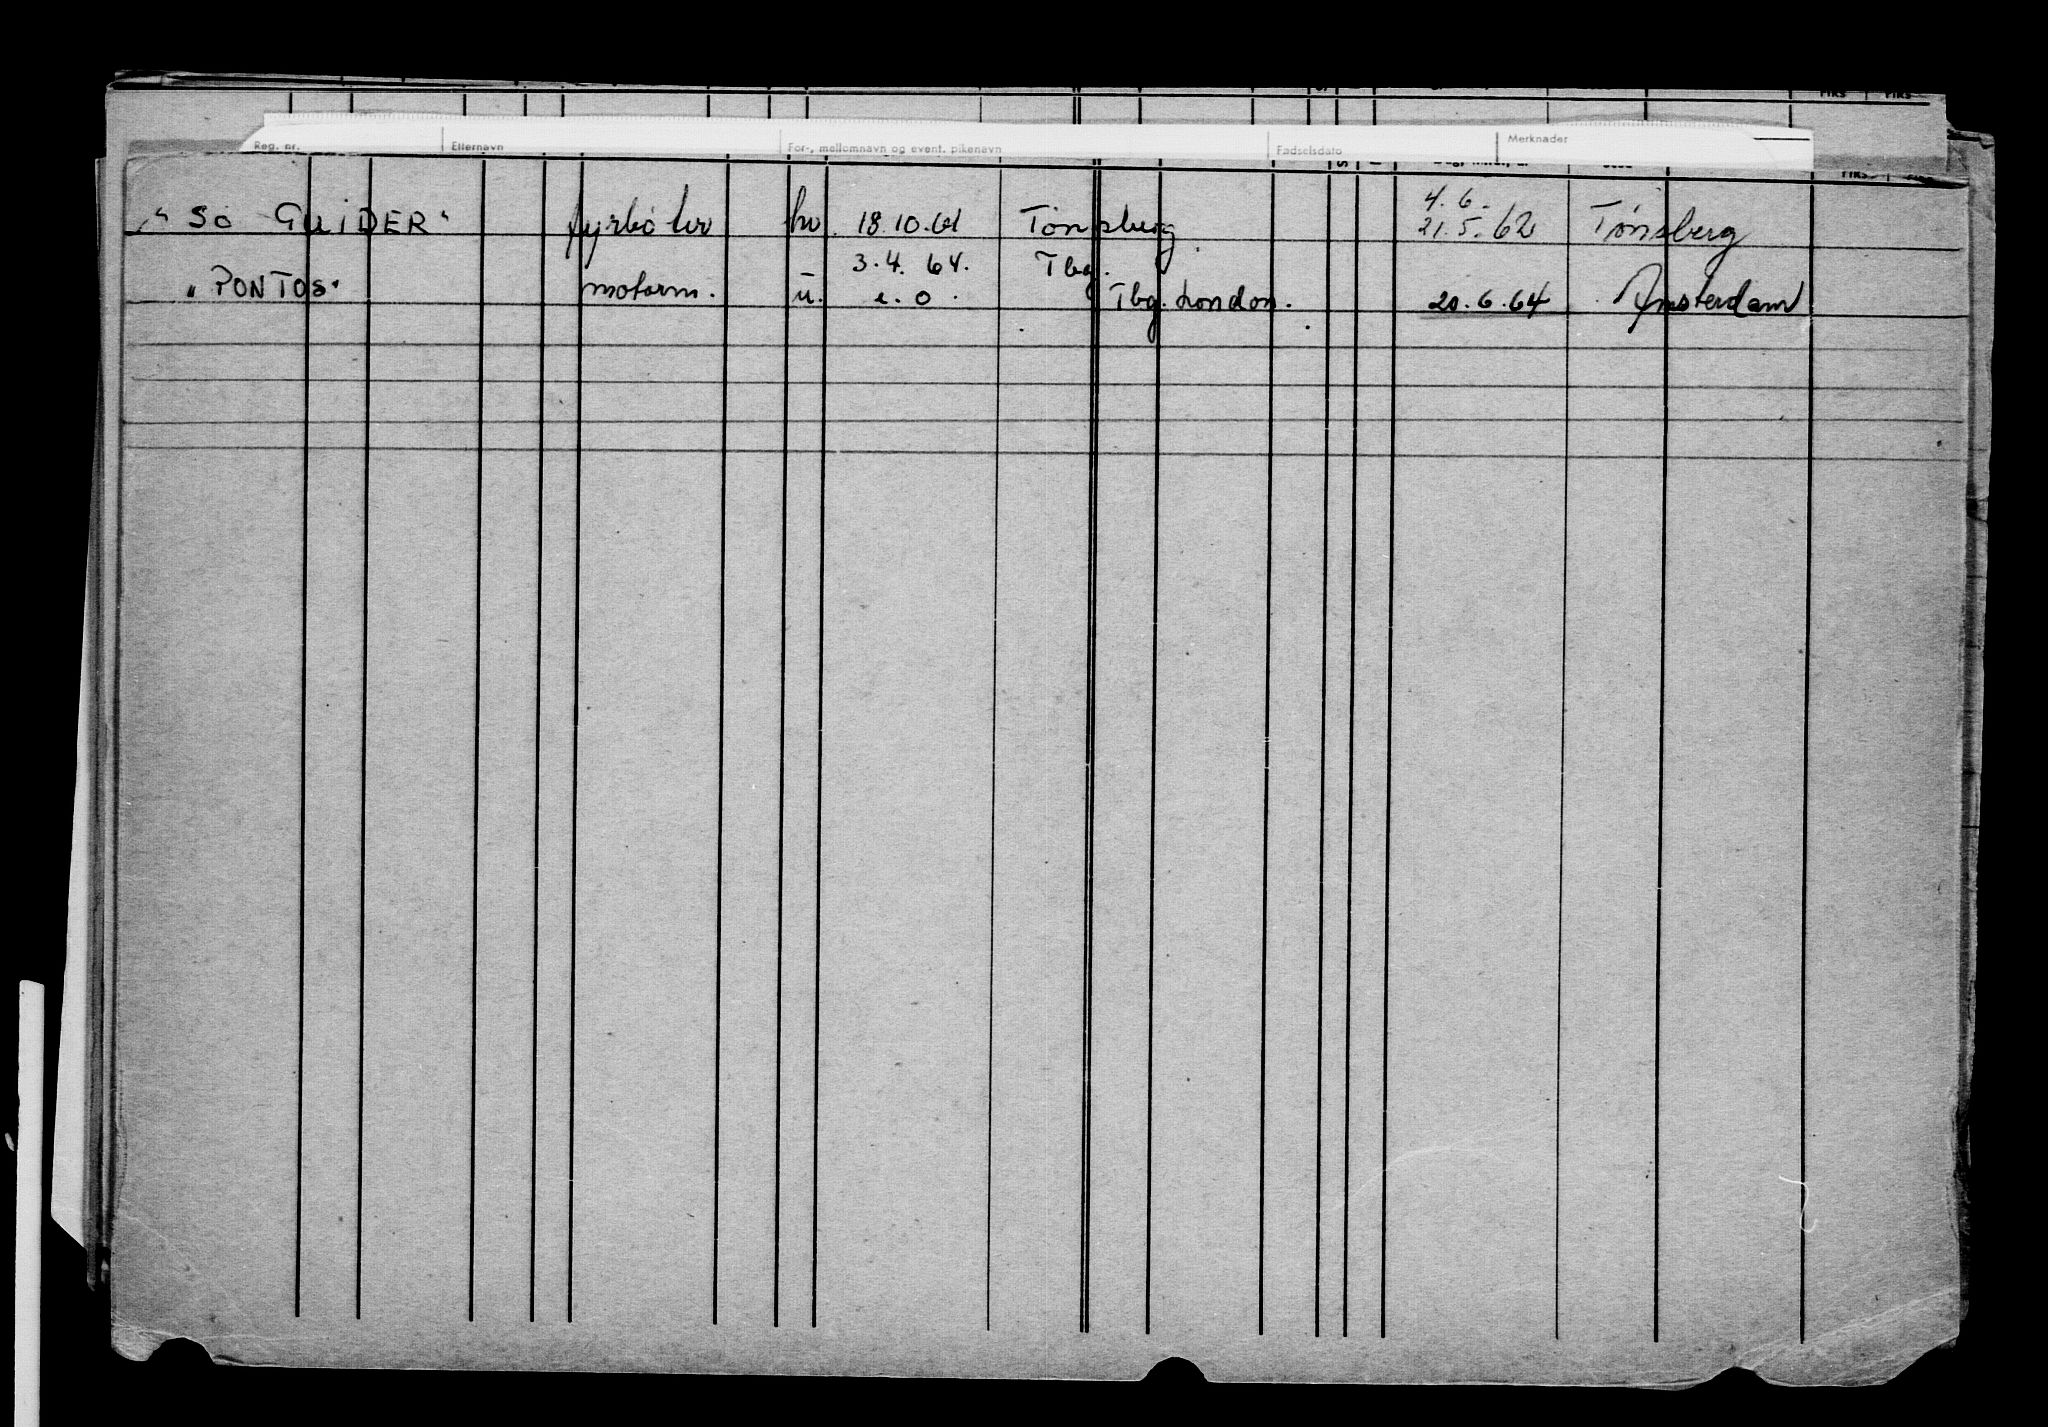 Reg. nr. Etternavn For-, mellomnavn og event. pikenavn Fødselsdato Merknader
4. 6.
"SO GLIDER" fyrbøter hv. 18.10.61 Tønsberg 21.5.62 Tønsberg
3.4.64. Tbg.
"PONTOS" motorm. u. e.o. Tbg. London. 20.6.64 Amsterdam